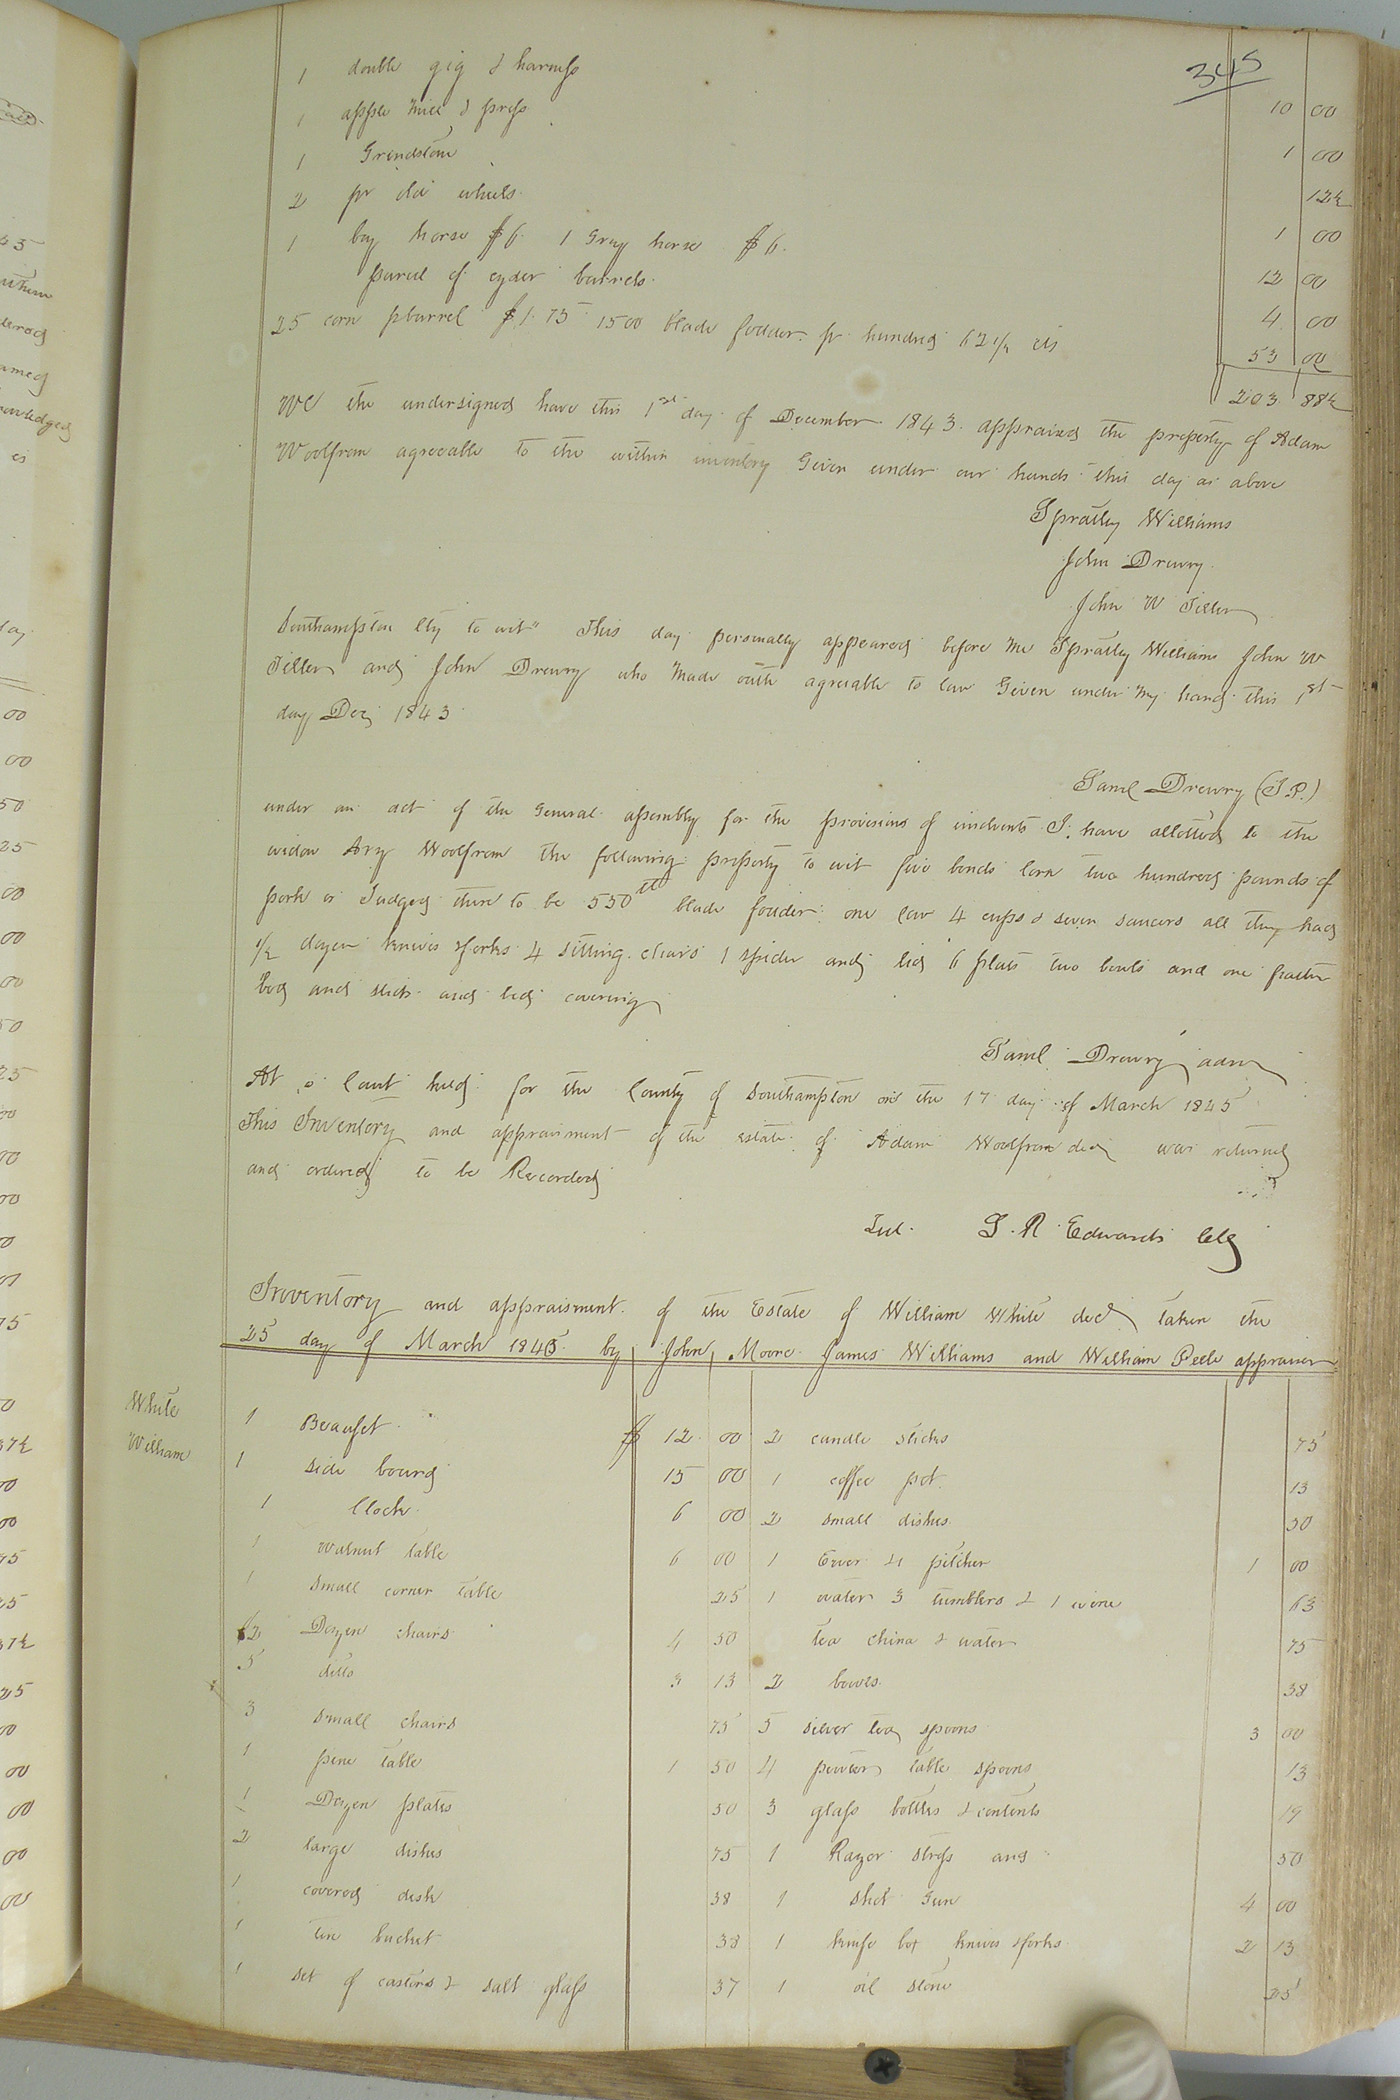 345
1 double gig & harness 10 00
1 apple mill & press 1 00
1 Grindstone 12½
2 pr old wheels 1 00
1 bay horse $6. 1 Gray horse $6. 12 00
parcel of cyder barrels. 4 00
25 corn pbarrel $1.75 1500 blade fodder pr hundred 62 1/2 cts 53 00
203 88½
We the undersigned have this 1st day of December 1843. appraised the property of Adam
Woolfrom agreeable to the within inventory Given under our hands this day as above
Spratley Williams
John Drewry
John W Tiller
Southampton Cty to wit" This day personally appeared before me Spratley Williams John W
Tiller and John Drewry who made oath agreeable to law Given under my hand this 1st
day Decj 1843
Saml Drewry (J.P.)
under an act of the General assembly for the provisions of insolvents I have allotted to the
widow Avy Woolfrom the following property to wit five bonds Corn two hundred pounds of
pork is Judged there to be 550 lb blade fodder one Cow 4 cups & seven saucers all they had
1/2 dozen knives & forks 4 sitting chairs 1 spider and lid 6 plats two bowls and one
bed and stids and bed covering
Saml Drewry adm
At a Court held for the County of Southampton on the 17 day of March 1845
This Inventory and appraisment of the estate of Adam Woolfrom decd was returned
and ordered to be Recorded
L. R. Edwards Clk
Inventory and appraisment of the Estate of William White decd taken the
25 day of March 1845 by John Moore James Williams and William Peele appraisers
White
William
1 Beaufet $ 12 00 2 candle sticks 75
1 side board 15 00 1 coffee pot 13
1 Clock 6 00 2 small dishes 50
1 walnut table 6 00 1 Ewer & pitcher 1 00
1 small corner table 25 1 water 3 tumblers & 1 wine 63
2 Dozen chairs 4 50 tea china & water 75
5 ditto 3 13 2 bowls 38
3 small chairs 75 5 silver tea spoons 3 00
1 pine table 1 50 4 pewter table spoons 13
1 Dozen plates 50 3 glass bottles & contents 19
2 large dishes 75 1 Razor strop and 50
1 covered dish 38 1 shot Gun 4 00
1 tin bucket 38 1 knife box knives & forks 2 13
1 set of castors & salt glass 37 1 oil stone 25